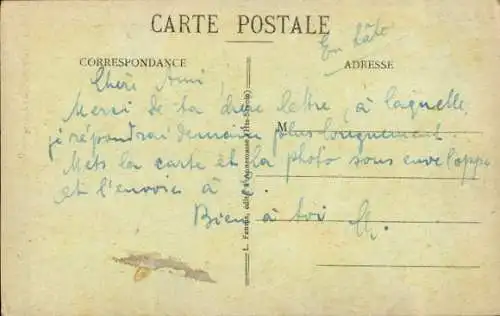 CARTE POSTALE
En hâte
CORRESPONDANCE
ADRESSE
Chère Ami,
Merci de ta chère lettre, à laquelle
je répondrai demain plus longuement.
M
Mets la carte et la photo sous enveloppe
et l'envoie à
Bien à toi
L. Fannis, édit. à Annemasse (Hte-Savoie)